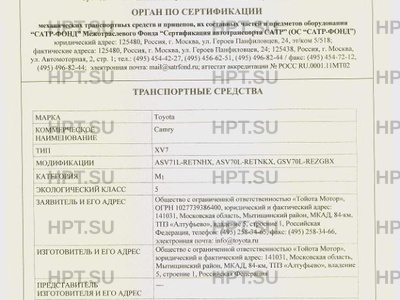 ОРГАН ПО СЕРТИФИКАЦИИ
механических транспортных средств и прицепов, их составных частей и предметов оборудования
"САТР-ФОНД" Межотраслевого Фонда "Сертификация автотранспорта САТР" (ОС "САТР-ФОНД")
юридический адрес: 125480, Россия, г. Москва, ул. Героев Панфиловцев, 24, эт/ком 5/518;
фактические адреса: 125480, Россия, г. Москва, ул. Героев Панфиловцев, 24; 125438, Россия, г. Москва,
ул. Автомоторная, 2, стр. 1; тел.: (495) 454-42-27, (495) 456-62-51, (495) 496-82-44 / факс: (495) 454-72-12,
(495) 496-82-44; электронная почта: mail@satrfond.ru; аттестат аккредитации № РОСС RU.0001.11МТ02
ТРАНСПОРТНЫЕ СРЕДСТВА
МАРКА Toyota
КОММЕРЧЕСКОЕ НАИМЕНОВАНИЕ Camry
ТИП XV7
МОДИФИКАЦИИ ASV71L-RETNHX, ASV70L-RETNKX, GSV70L-REZGBX
КАТЕГОРИЯ M1
ЭКОЛОГИЧЕСКИЙ КЛАСС 5
ЗАЯВИТЕЛЬ И ЕГО АДРЕС Общество с ограниченной ответственностью «Тойота Мотор»,
ОГРН 1027739386400, юридический и фактический адрес:
141031, Московская область, Мытищинский район, МКАД, 84-км,
ТПЗ «Алтуфьево», владение 5, строение 1, Российская
Федерация, телефон: (495) 258-34-65, факс: (495) 258-34-66,
электронная почта: info@toyota.ru
ИЗГОТОВИТЕЛЬ И ЕГО АДРЕС Общество с ограниченной ответственностью «Тойота Мотор»,
юридический и фактический адрес: 141031, Московская область,
Мытищинский район, МКАД, 84-км, ТПЗ «Алтуфьево», владение
5, строение 1, Российская Федерация
ПРЕДСТАВИТЕЛЬ —
ИЗГОТОВИТЕЛЯ И ЕГО АДРЕС
HPT.SU HPT.SU HPT.SU
HPT.SU HPT.SU HPT.SU
HPT.SU HPT.SU HPT.SU
HPT.SU HPT.SU HPT.SU